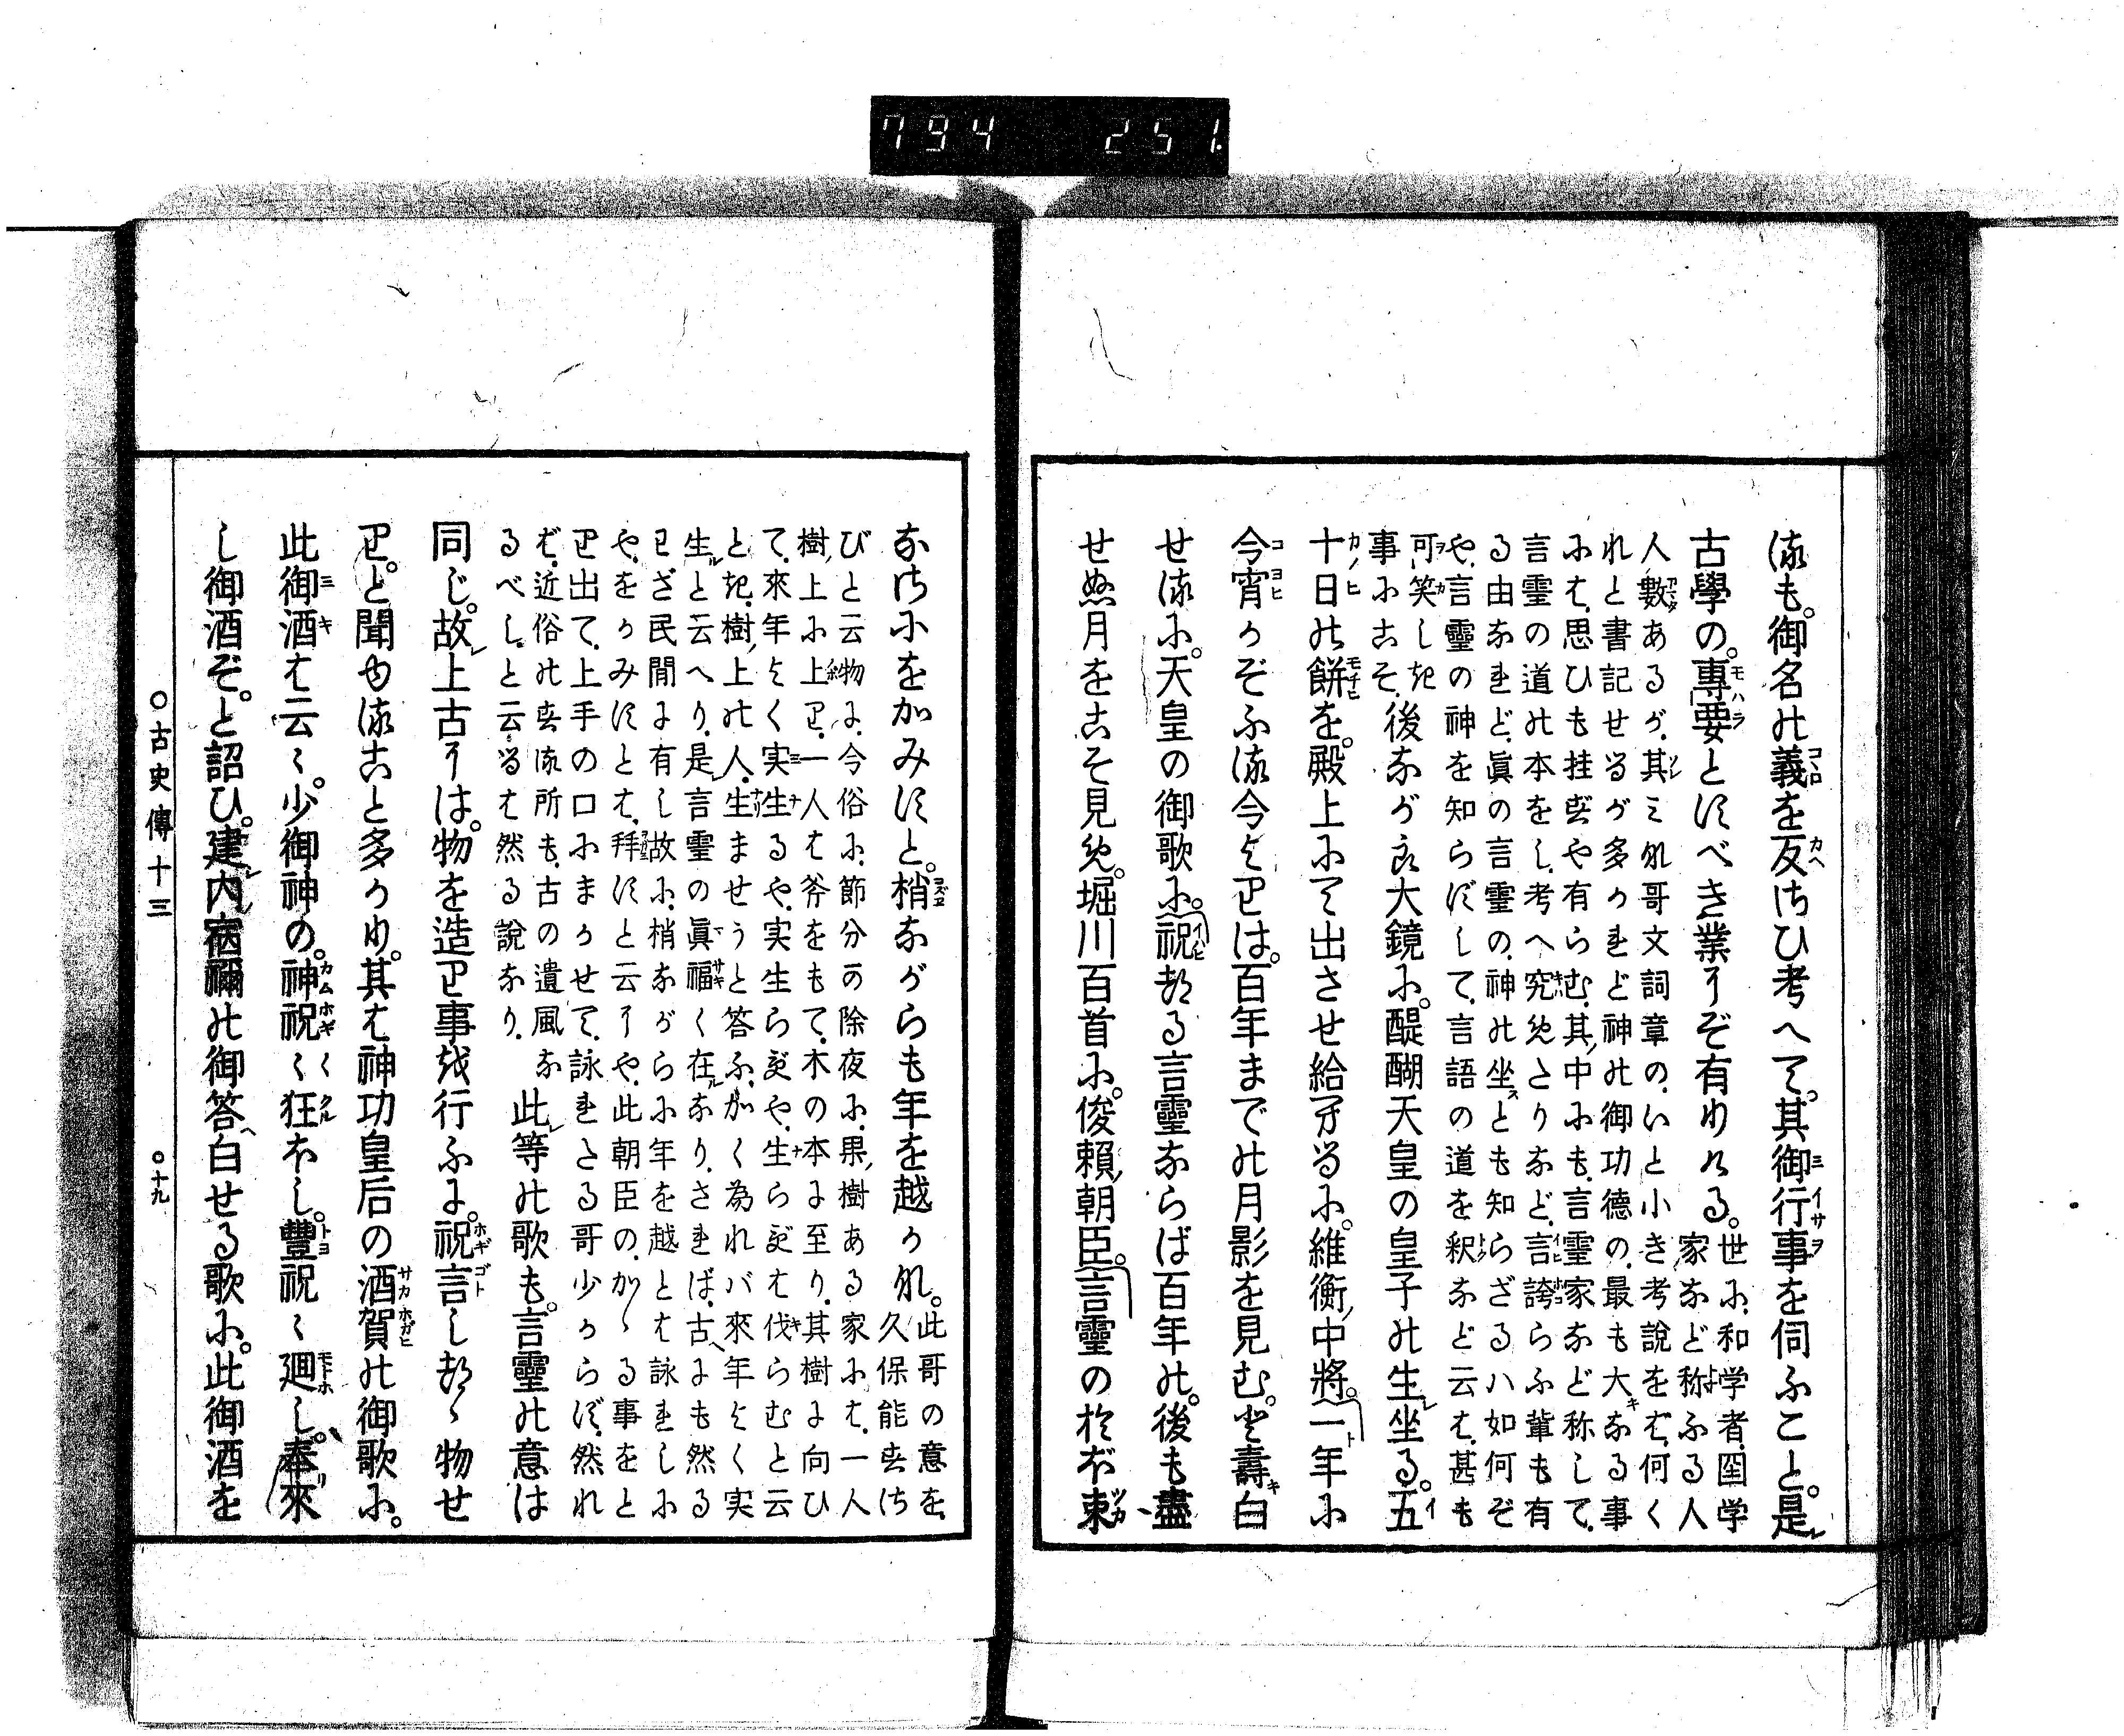 794 251.
る も。御名の義を反さひ考へて。其御行事を伺ふこと。是
古學の。專要とすべき業にぞ有ける。世に、和学者、国学
家など称ふる人
人數あるが、其之れ哥文詞章の、いと小き考説をば、何く
れと書記せるが多かれど神の御功德の、最も大なる事
には、思ひも挂ずや有らむ、其中にも、言靈家など称して、
言靈の道の本をし、考へ究めたりなど、言誇らふ輩も有
る由なれど、眞の言靈の、神の坐とも知らざるハ如何ぞ
や、言靈の神を知らずして、言語の道を釈など云は、甚も
可笑しき
事にこそ、後ながら大鏡に。醍醐天皇の皇子の生坐る。五
十日の餅を。殿上にて出させ給へるに。維衡中將。一年に
今宵かぞふる今よりは。百年までの月影を見む。と壽白
せるに。天皇の御歌に。祝つる言靈ならば百年の。後も盡
せぬ月をこそ見め。堀川百首に。俊賴朝臣。言靈のおぼ束
なさにをかみすと。梢ながらも年を越かな。此哥の意を、
久保能季さ
びと云物に、今俗に、節分の除夜に、果樹ある家には、一人
樹上に上り、一人は斧をもて、木の本に至り、其樹に向ひ
て、來年よく実生るや、実生らずや、生らずは伐らむと云
とき、樹上の人、生ませうと答ふ、かく為れバ來年よく実
生と云へり、是言靈の眞福く在なり、されば、古へも然る
わざ民間に有し故に、梢ながらに年を越とは詠れしに
や、をかみすとは、拜すと云にや、此朝臣の、かゝる事をと
り出て、上手の口にまかせて、詠れたる哥少からず、然れ
ば、近俗のする所も、古の遺風な
るべし、と云るは然る說なり、此等の歌も。言靈の意は
同じ。故上古には。物を造り事を行ふに。祝言しつゝ物せ
り。と聞ゆること多かり。其は神功皇后の酒賀の御歌に。
此御酒は云々。少御神の。神祝々狂ほし。豐祝々廻し。奉來
し御酒ぞ。と詔ひ。建內宿禰の御答白せる歌に。此御酒を
○古史傳十三 ○十九